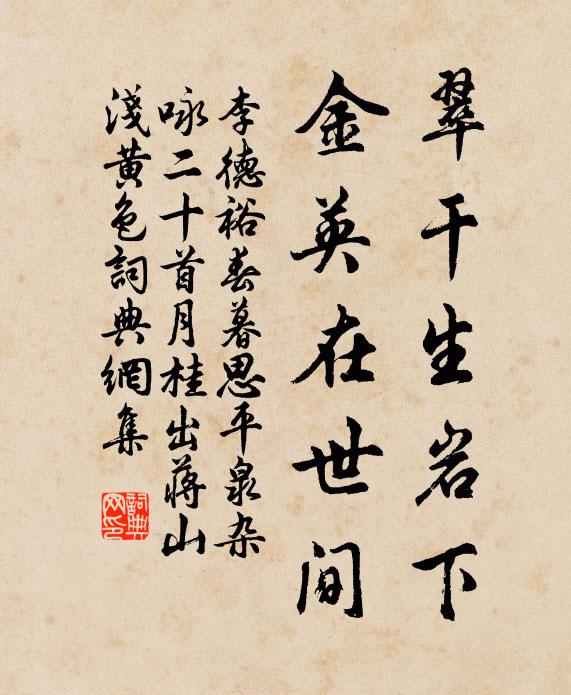 翠干生岩下
金英在世间
李德裕春暮思平泉杂
咏二十首月桂出蒋山
淺黄色詞典網集
詞典網印